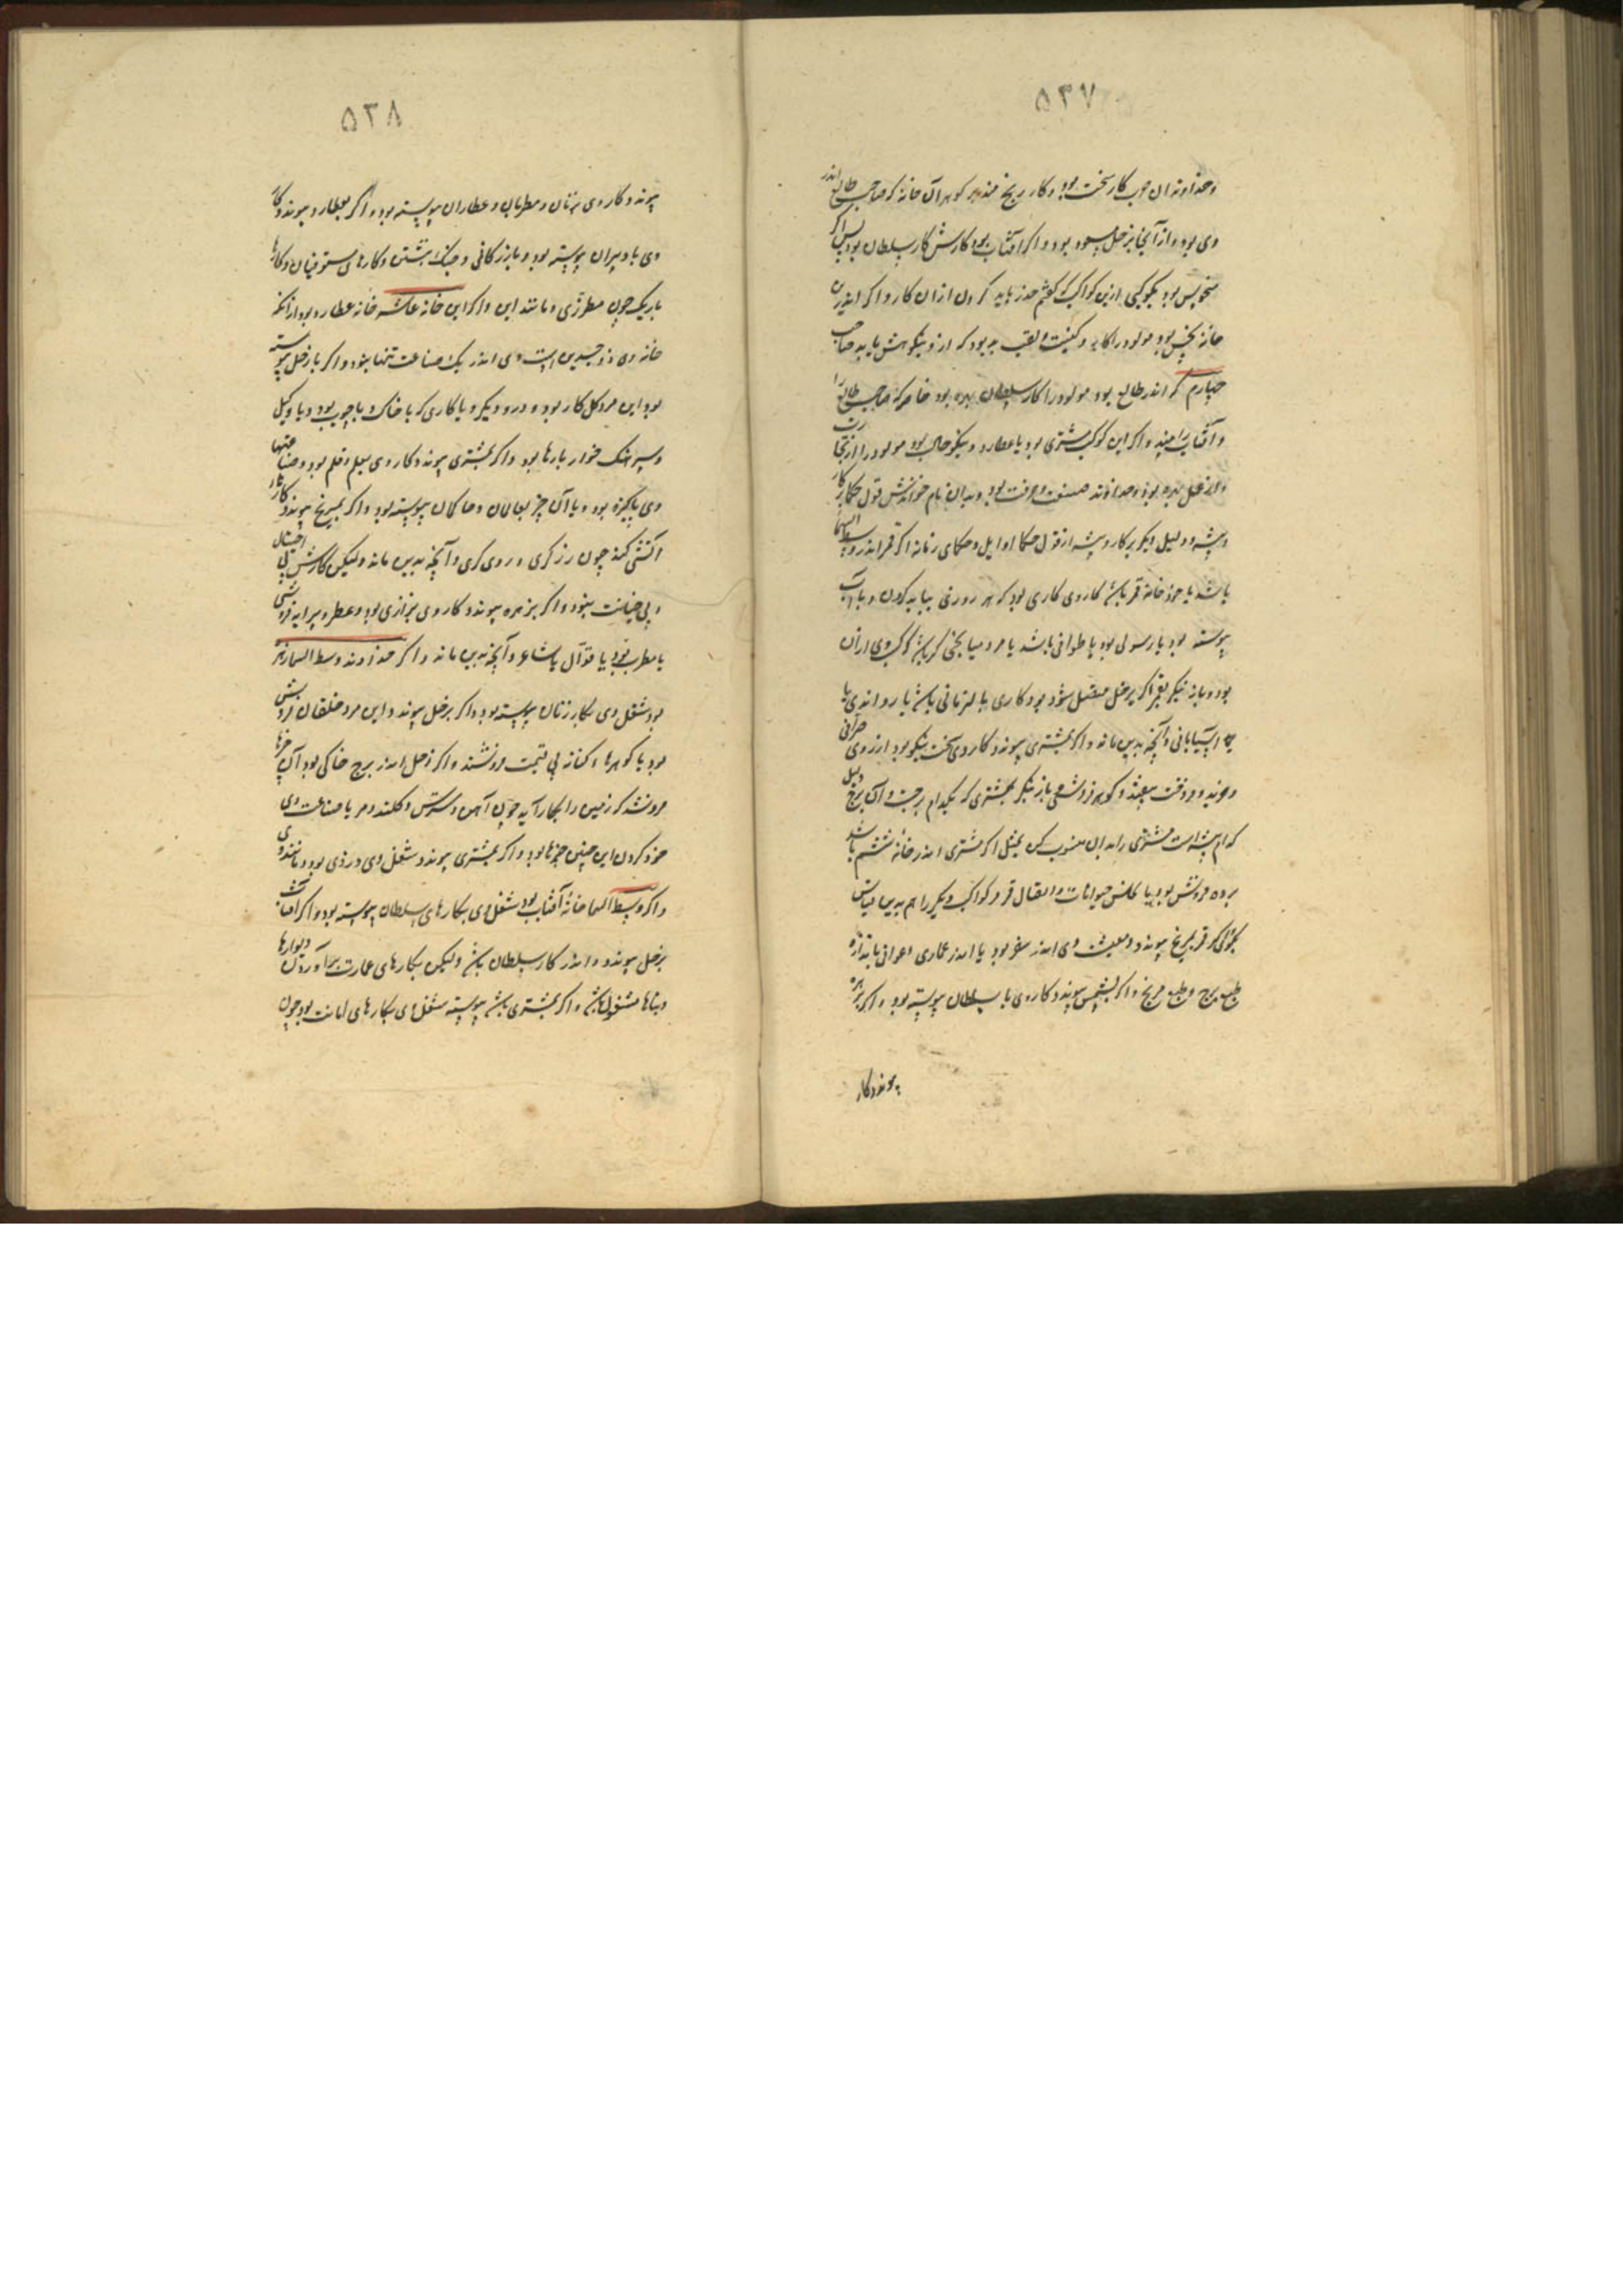 ۵۳۷
وخداوندان چوب کار سخت بود و کار مریخ هر آن خانه که صاحب طالع اندر
وی بود و از آنجا بزحل مسعود بود و اگر آفتاب بود کارش کار سلطان بود پس اگر
منحوس بود بکوکبی ازین کواکب که گفتم حذر باید کردن ازان کار و اگر اندرین
خانه نحس بود مولود را کاری و کنیت و لقب بد بود که ازو نیکوهش یابد صاحب
چهارم که اندر طالع بود مولود را کار سلطان بهره بود خاصه که صاحب طالع را
و آفتاب را بیند و اگر این کوکب مشتری بود یا عطارد و نیکو حال بود مولود را از تجارت
بهره بود و خداوند صنعت و حرفت بود و بدان نام خوانندش قول حکما بر کار
و پیشه و دلیل دیگر بر کار و پیشه از قول حکما اوایل و حکمای زمانه اگر قمر اندر وسط السما
باشد یا خود خانه قمر باشد کار وی کاری بود که هر روزی بباید کردن و با آب
پیوسته بود یا رسولی بود یا طوافی باشد یا مرد میانجی گر باشد کوکب وی ازان
بود و باز نیگر بقمر اگر بزحل متصل شود بود کاری یا
یا آسیابانی و آنچه بدین ماند و اگر بمشتری پیوندد کار وی سخت نیکو بود از روی صرافی
و گوهر فروشی باز نیگر بمشتری که بکدام برجست و آن برج دلیل
کدام پیشه است مشتری را بدان منسوب کن بمثل اگر مشتری اندر خانه ششم باشد
برده فروش بود یا حیوانات و اتصال قمر و کواکب دیگر را هم بدین قیاس
بگوی که قمر بمریخ پیوندد و معیشت وی اندر سفر بود یا اندر عماری و عوانی باندازه
طبع برج و طبع مریخ و اگر بشمس پیوندد کار وی با سلطان پیوسته بود و اگر بزهره
پیوندد کار
۵۳۸
پیوندد کار وی بزنان و مطربان و عطاران پیوسته بود و اگر بعطارد پیوندد کار
وی با دبیران پیوسته بود و بازرگانی و نبشتن و کارهای مستوفیان و کارها
باریک چون مطرزی و مانند این و اگر این خانه عاشر خانه عطارد بود ازانکه
خانه وی ذو جسدین است وی اندر یک صناعت تنها نبود و اگر با زحل پیوسته
بود این مرد گل کار بود و درودگر و یا کاری که با خاک و با چوب بود و یا وکیل
و سرهنگ خواربارها بود و اگر بمشتری پیوندد کار وی بعلم و قلم بود و صناعتها
وی پاکیزه بود و یا آن چیز بعالمان و حاکمان پیوسته بود و اگر بمریخ پیوندد کارها
آتشی کند چون زرگری و روی گری و آنچه بدین ماند ولیکن کارش بی احتیال
و بی خیانت نبود و اگر بزهره پیوندد کار وی بزازی بود و عطر و پیرایه فروشی
یا مطرب بود یا قوّال یا شاعر و آنچه بدین ماند و اگر خداوند وسط السما زهره
بود شغل وی بکار زنان پیوسته بود و اگر بزحل پیوندد این مرد خلقان فروش
بود یا گوهرها و کنانه بی قیمت فروشد و اگر زحل اندر برج خاکی بود آن چیزها
فروشد که زمین را بکار آید چون آهن و کلند و مر یا صناعت وی
خود کردن این چنین چیزها بود و اگر بمشتری پیوندد شغل وی درزی بود و مانند وی
و اگر وسط السما خانه آفتاب بود شغل وی بکارهای سلطان پیوسته بود و اگر آفتاب
بزحل پیوندد اندر کار سلطان باشد ولیکن بکارهای عمارت برآوردن دیوارها
و بناها مشغول باشد و اگر بمشتری باشد پیوسته شغل وی بکارهای امانت بود چون